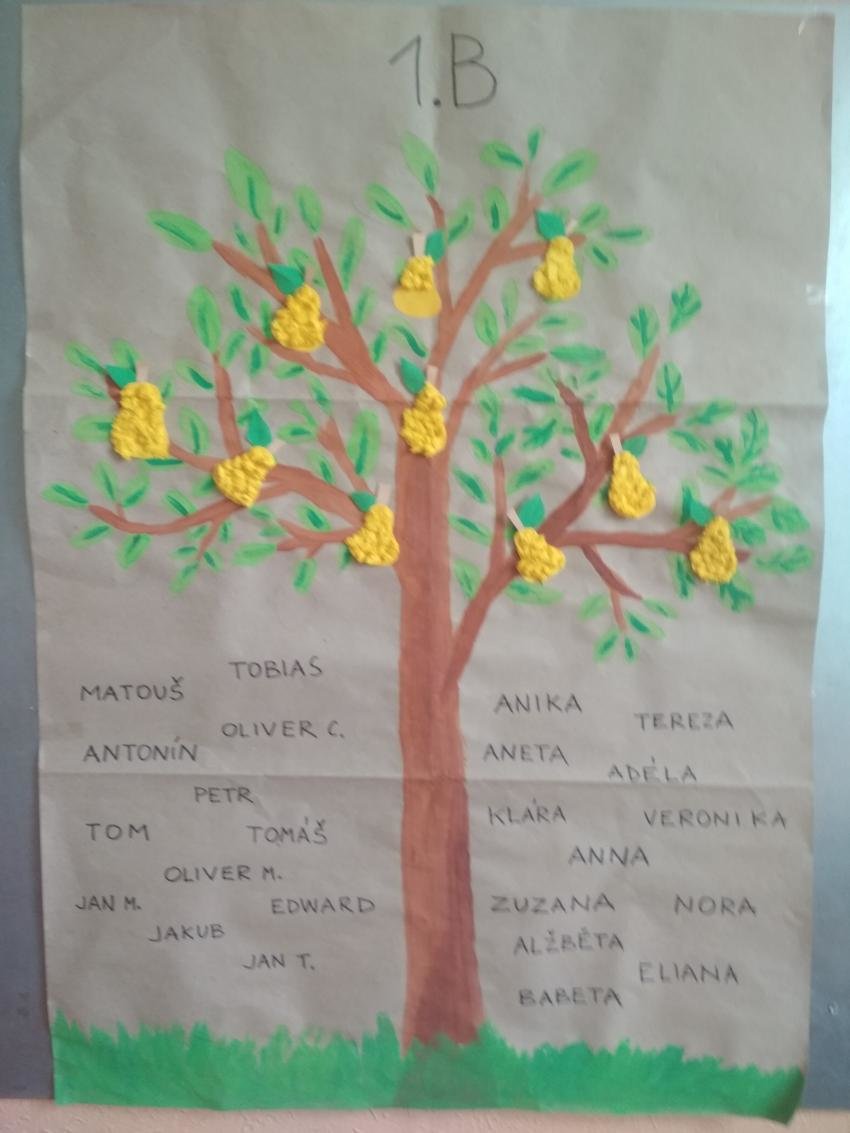 1.B
TOBIAS
MATOUŠ
OLIVER C.
ANTONÍN
PETR
TOM
TOMÁŠ
OLIVER M.
JAN M.
EDWARD
JAKUB
JAN T.
ANIKA
TEREZA
ANETA
ADÉLA
KLÁRA
VERONIKA
ANNA
ZUZANA
NORA
ALŽBĚTA
ELIANA
BABETA